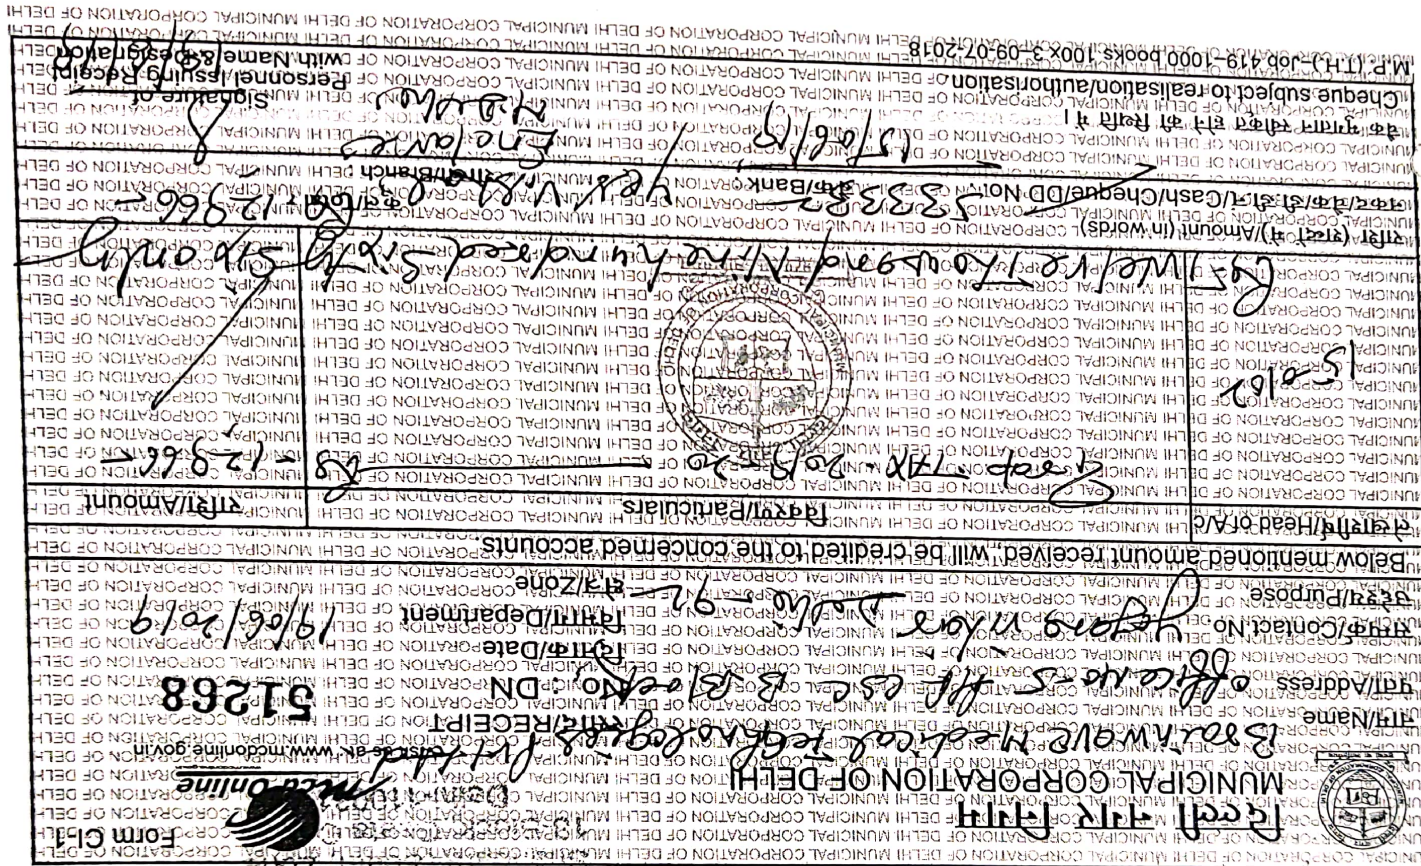 Form CI-1
दिल्ली नगर निगम
MUNICIPAL CORPORATION OF DELHI
mcd Online
Visit us at: www.mcdonline.gov.in
रसीद/RECEIPT
No.: DN 51268
नाम/Name Brainwave Medical Technologies Pvt Ltd
पता/Address office No-5 CSC B Block
दिनांक/Date 19/06/2019
सम्पर्क/Contact No Yojana vihar Delhi-92
विभाग/Department
उद्देश्य/Purpose
क्षेत्र/Zone
Below mentioned amount received, will be credited to the concerned accounts
लेखाशीर्ष/Head of A/c विवरण/Particulars राशि/Amount
Prop-TAX- 2019-20 Rs -12966-
राशि (शब्दों में)/Amount (in words) Rs Twelve Thousand Nine hundred Sixty Six only
नकद/चैक/डी.डी.नं/Cash/Cheque/DD No. 533382 बैंक/Bank Yes शाखा/Branch कुल/Total Rs 12966-
15/06/19 Enclave
चैक भुगतान स्वीकृत होने की स्थिति में।
Cheque subject to realisation/authorisation
Signature of
Personnel Issuing Receipt
with Name & Designation
M.P.(T.H.)-Job 419-1000 books 100x 3-09-07-2018